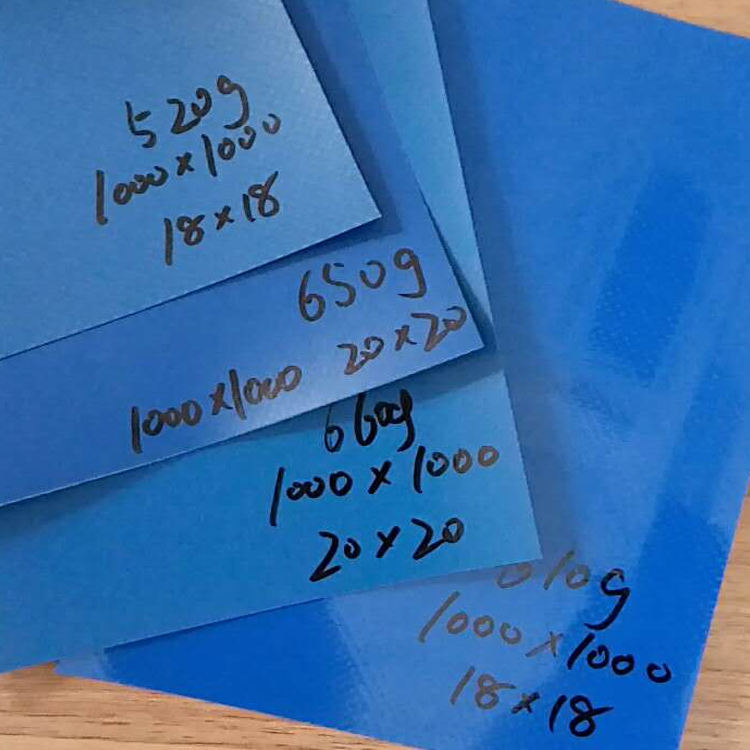 520g
1000×1000
18×18
650g
1000×1000 20×20
660g
1000×1000
20×20
610g
1000×1000
18×18